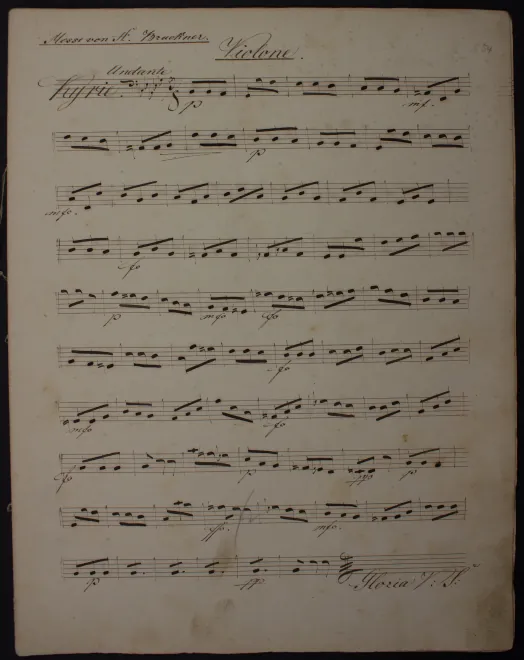 Messe von A. Bruckner.
Violone.
Andante
Kyrie
p mf.
p
mfo.
fo
p mfo fo
fo
mfo fo
fo p ppo p
ffo. mfo.
p pp
Gloria V: S: